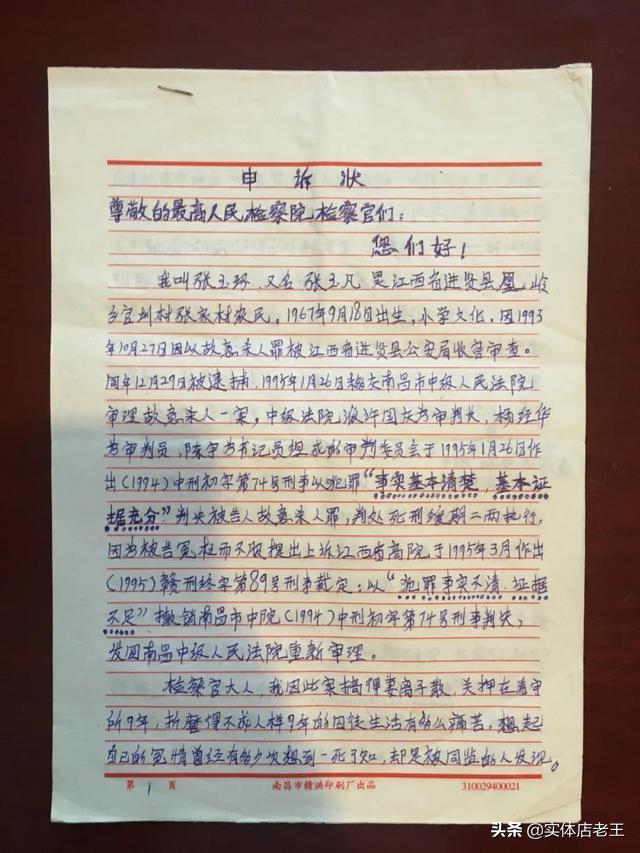 申诉状
尊敬的最高人民检察院检察官们：
您们好！
我叫张玉环，又名张玉凡是江西省进贤县凰岭
乡宜圳村张家村农民，1967年9月18日出生，小学文化，因1993
年10月27日因以故意杀人罪被江西省进贤县公安局收容审查。
同年12月29日被逮捕，1995年1月26日经南昌市中级人民法院
审理故意杀人一案，中级法院 许国庆为审判长，杨经华
为审判员，陈宇为书记员组成的审判委员会于1995年1月26日作
出(1994)中刑初字第74号刑事以犯罪“事实基本清楚，基本证
据充分”判决被告人故意杀人罪，判处死刑缓期二两执行，
因为被告冤枉而不服提出上诉江西省高院于1995年3月作出
(1995)赣刑终字第89号刑事裁定：以“犯罪事实不清，证据
不足”撤销南昌市中院(1994)中刑初字第74号刑事判决，
发回南昌中级人民法院重新审理。
检察官大人，我因此案搞得妻离子散，关押在看守
所9年，折磨得不成人样9年的囚徒生活有多么痛苦，想起
自己的冤情曾经有多少次想到一死了知，却是被同监的人发现。
第 1 页
南昌市赣洪印刷厂出品
310029400021
头条 @实体店老王